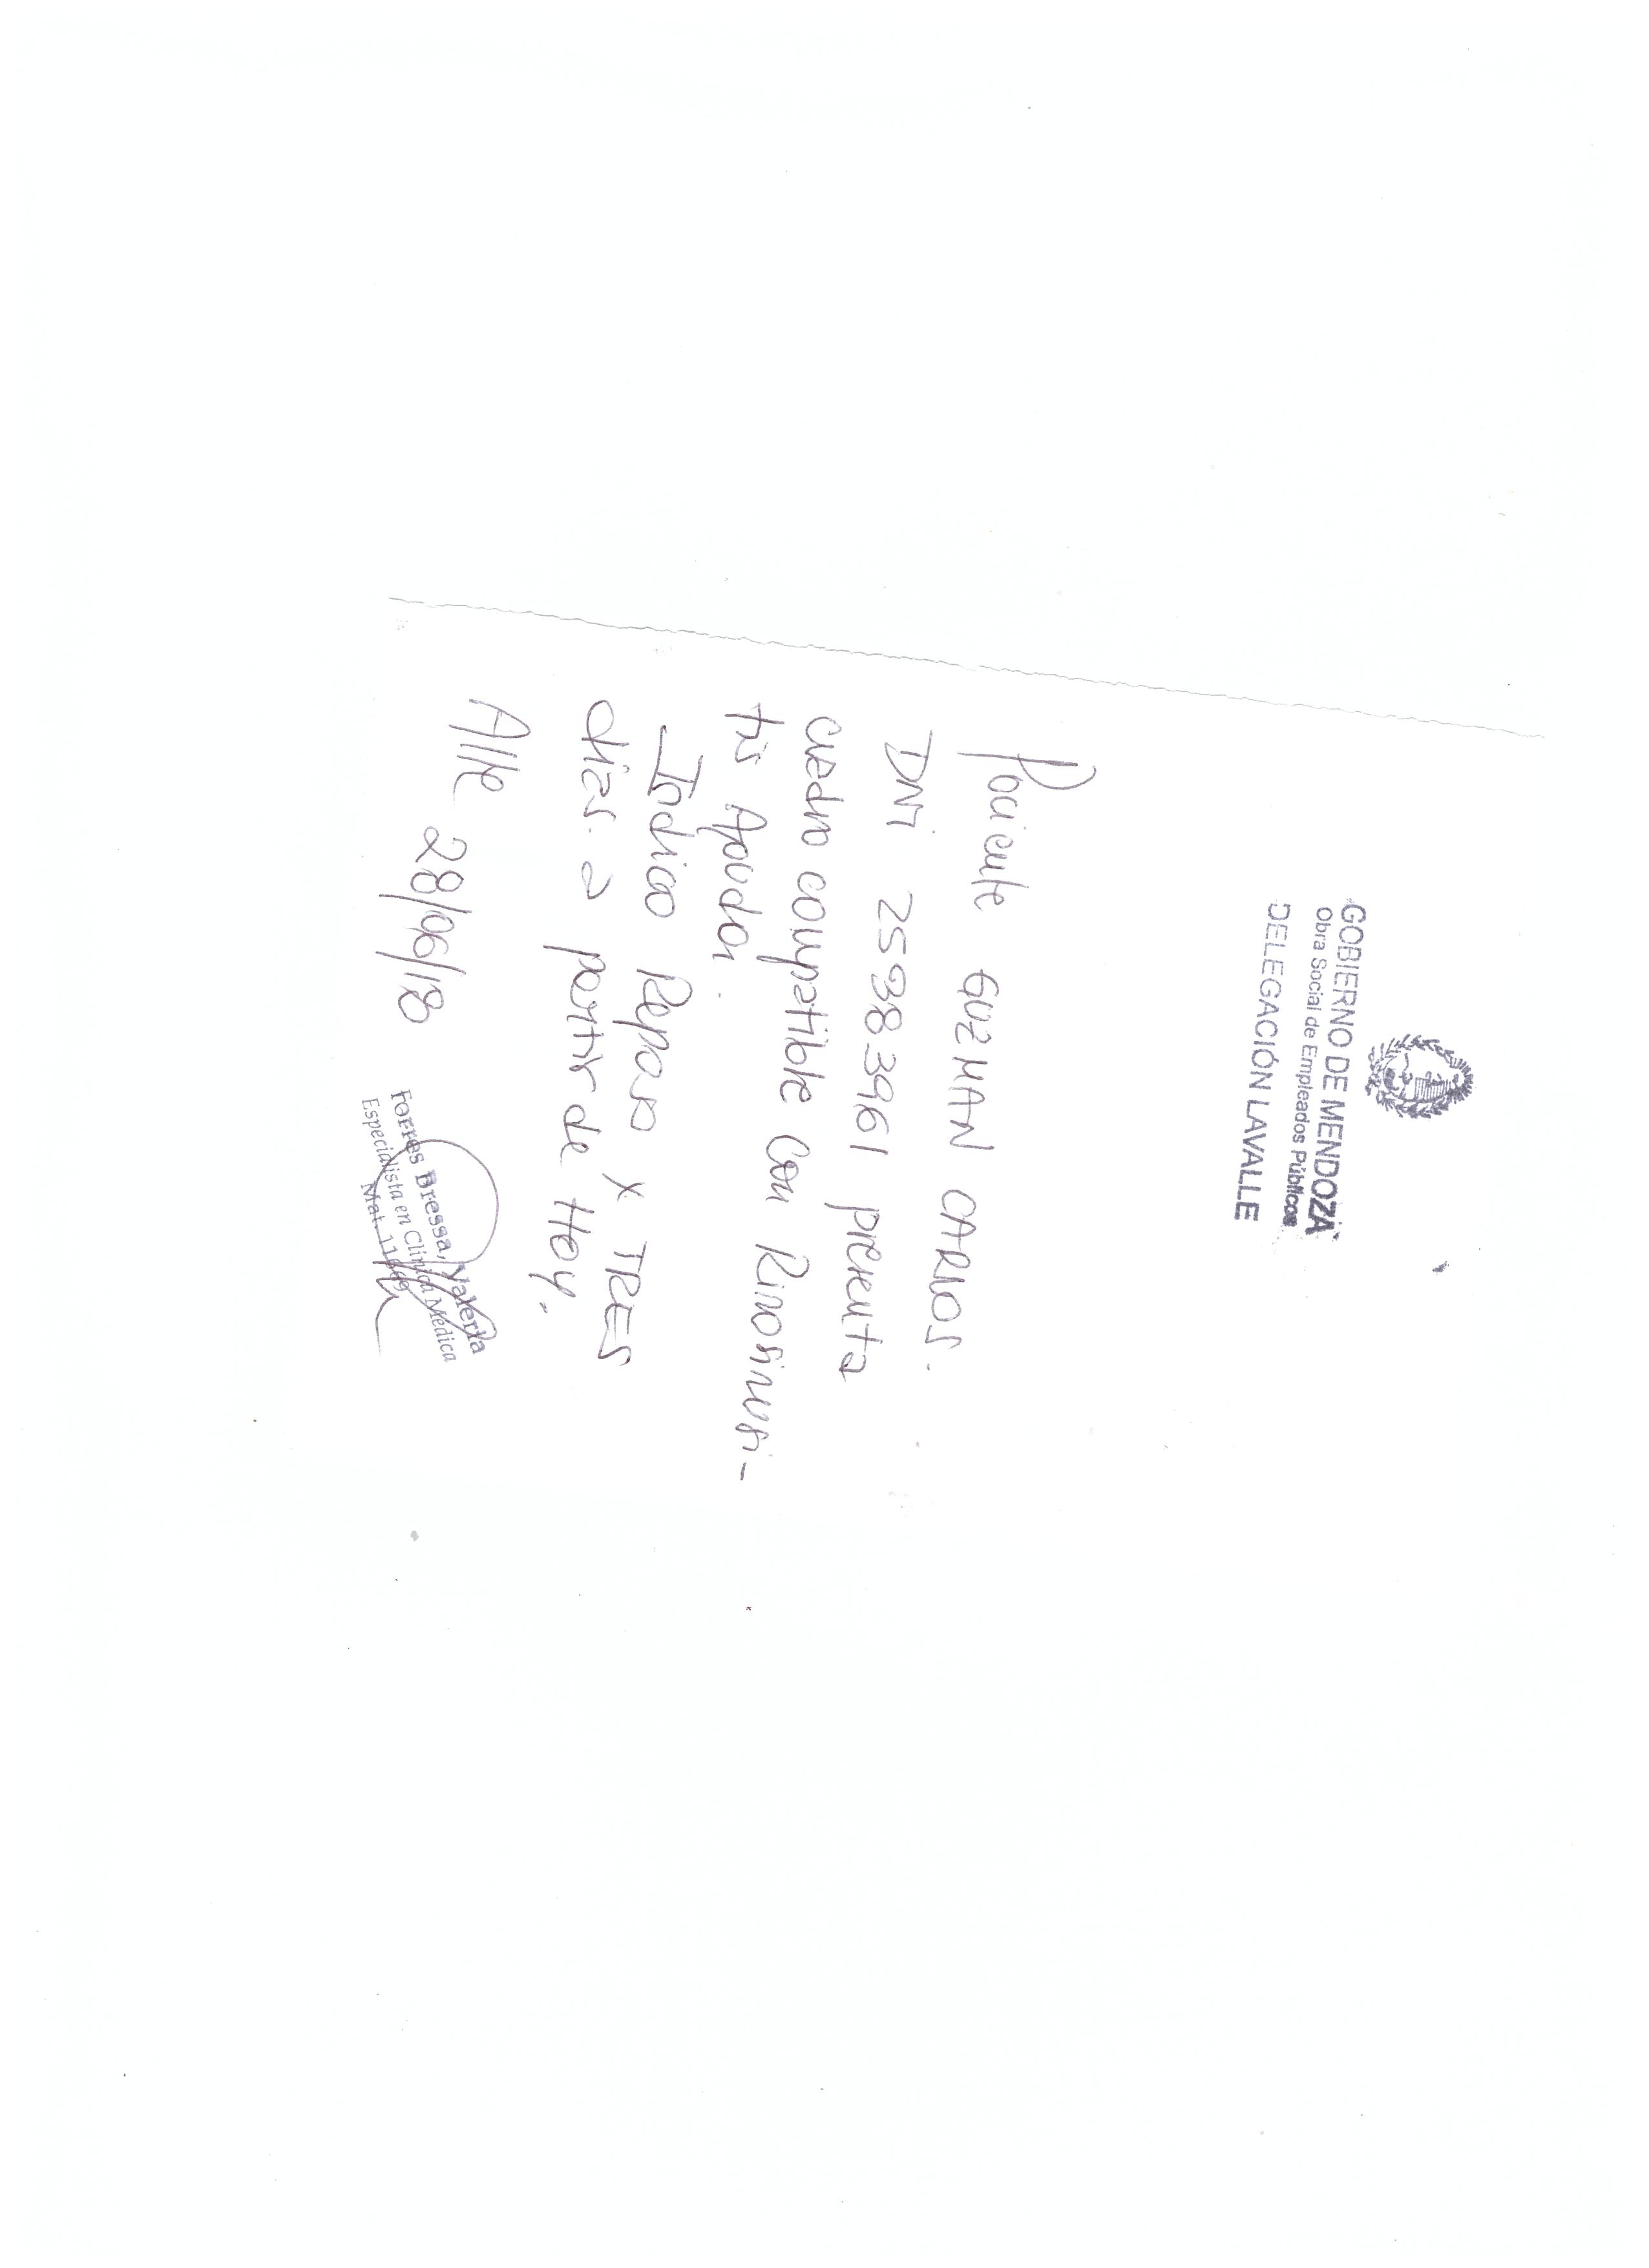 GOBIERNO DE MENDOZA
Obra Social de Empleados Públicos
DELEGACIÓN LAVALLE
Paciente GUZMAN CARLOS.
DNI 25983961 presenta
cuadro compatible con Rinosinusi-
tis Aguda.
Indico Reposo x TRES
días a partir de Hoy.
Atte 28/06/18
Torres Bressa, Valeria
Especialista en Clínica Médica
Mat.